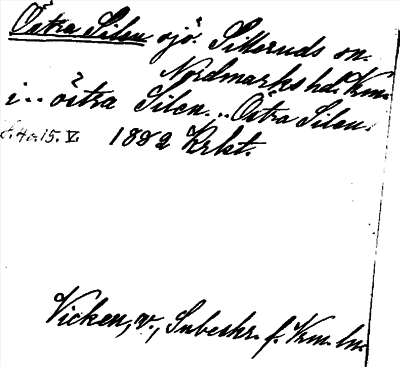 Östra Silen sjö. Silleruds sn.
Nordmarks hd. Vrm.
i.. östra Silen... Östra Silen.
S. 4 o. 15. V. 1882 Krkt.
Vicken, v., Inbeskr. f. Vrm. ln.